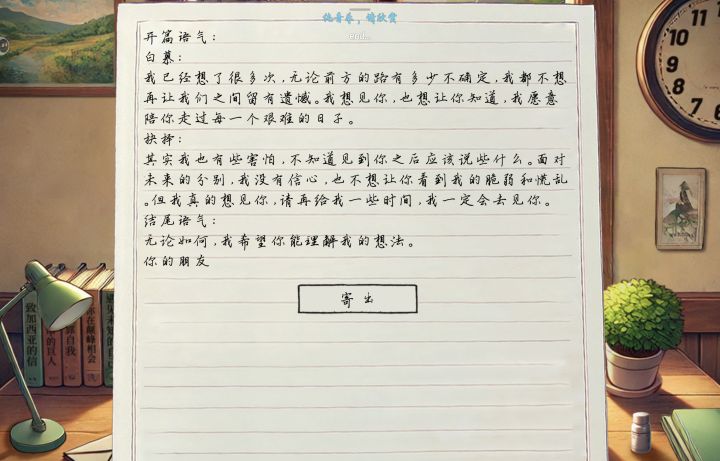 纯音乐，请欣赏
end...
开篇语气：
白慕：
我已经想了很多次，无论前方的路有多少不确定，我都不想
再让我们之间留有遗憾。我想见你，也想让你知道，我愿意
陪你走过每一个艰难的日子。
抉择：
其实我也有些害怕，不知道见到你之后应该说些什么。面对
未来的分别，我没有信心，也不想让你看到我的脆弱和慌乱
。但我真的想见你，请再给我一些时间，我一定会去见你。
结尾语气：
无论如何，我希望你能理解我的想法。
你的朋友
寄出
致加西亚的信
的巨人
你自我
你在巅峰相会
10
11
12
1
9
8
7
6